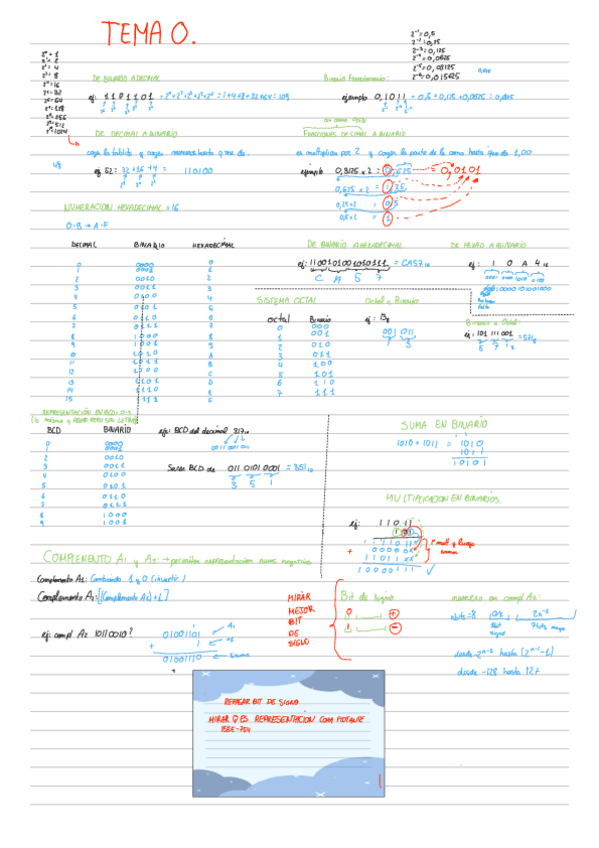 TEMA 0.
2⁻¹ = 0,5
2⁻² = 0,25
2⁻³ = 0,125
2⁻⁴ = 0,0625
2⁻⁵ = 0,03125
2⁻⁶ = 0,015625
2⁰ = 1
2¹ = 2
2² = 4
2³ = 8
2⁴ = 16
2⁵ = 32
2⁶ = 64
2⁷ = 128
2⁸ = 256
2⁹ = 512
2¹⁰ = 1024
DE BINARIO A DECIMAL
ej: 1101101 = 2⁰+2²+2³+2⁵+2⁶ = 1+4+8+32+64 = 109
Binario Fraccionario:
ejemplo 0,1011 = 0,5 + 0,125 + 0,0625 = 0,6875
DE DECIMAL A BINARIO
ej 52 = 32 + 16 + 4 = 110100
FRACCIONES DECIMAL A BINARIO
se multiplica por 2 y coges la parte de la coma hasta que de 1,00
ejemplo 0,8125 x 2 = 1,625
0,625 x 2 = 1,25
0,25 x 2 = 0,5
0,5 x 2 = 1
NUMERACION HEXADECIMAL = 16
0-9 → A-F
DECIMAL BINARIO HEXADECIMAL
0 0000 0
1 0001 1
2 0010 2
3 0011 3
4 0100 4
5 0101 5
6 0110 6
7 0111 7
8 1000 8
9 1001 9
10 1010 A
11 1011 B
12 1100 C
13 1101 D
14 1110 E
15 1111 F
DE BINARIO A HEXADECIMAL
ej: 1100101001010111 = CA57₁₆
C A 5 7
DE HEXAD A BINARIO
ej: 1 0 A 4 ₁₆
SISTEMA OCTAL
octal Binario
0 000
1 001
2 010
3 011
4 100
5 101
6 110
7 111
Octal a Binario
ej: 13₈
001 011
1 3
Binario a Octal:
ej: 101 111 001 = 571₈
5 7 1
REPRESENTACIÓN EN BCD: 0-9
BCD BINARIO
0 0000
1 0001
2 0010
3 0011
4 0100
5 0101
6 0110
7 0111
8 1000
9 1001
ej: BCD del decimal 317₁₀
0011 0001 0111
BCD de 0011 0101 0001 = 351₁₀
3 5 1
SUMA EN BINARIO
1010 + 1011 = 1010
1011
10101
MULTIPLICACION EN BINARIOS.
ej: 11011
COMPLEMENTO A1 y A2: → permiten representacion nums negativos
Complemento A1: Cambiando 1 y 0 (invertir)
Complemento A2: [(Complemento A1)+1]
ej: compl A2 10110010?
01001101 → A1
+ 1
01001110 → suma
MIRAR
MEJOR
BIT
DE
SIGLO
Bit de signo
0 +
1 −
numeros en compl A2:
nbits = 8
desde -2ⁿ⁻¹ hasta (2ⁿ⁻¹-1)
desde -128 hasta 127
REPASAR BIT DE SIGNO
MIRAR Q ES REPRESENTACION COMA FLOTANTE
IEEE-754